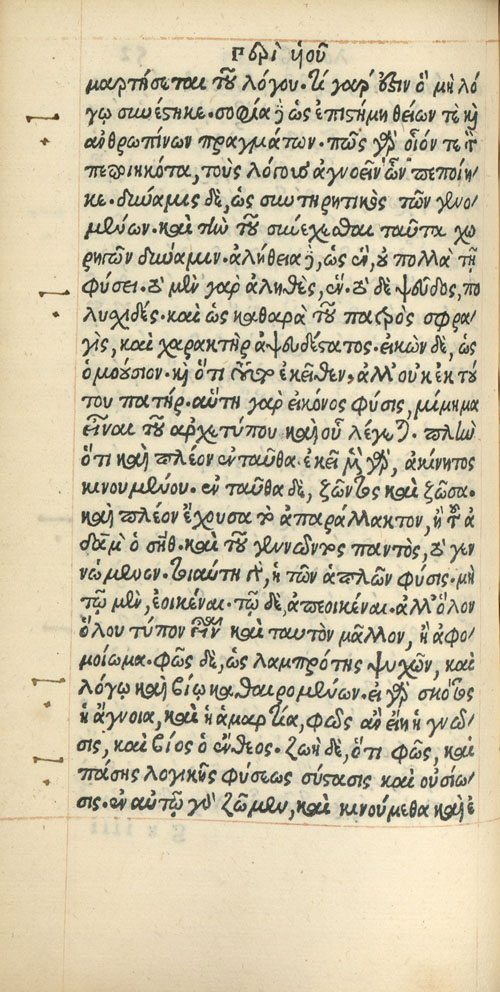 Περὶ υἱοῦ
μαρτήσεται τοῦ λόγου. τί γάρ ἐστιν ὃ μὴ λό
γῳ συνέστηκε. σοφία δὲ ὡς ἐπιστήμη θείων τε καὶ
ἀνθρωπίνων πραγμάτων. πῶς γὰρ οἷόν τε τὸν
πεποιηκότα, τοὺς λόγους ἀγνοεῖν ὧν πεποίη
κε. δύναμις δὲ, ὡς συντηρητικὸς τῶν γενο
μένων. καὶ τὴν τοῦ συνέχεσθαι ταῦτα χο
ρηγῶν δύναμιν. ἀλήθεια δὲ, ὡς ἓν, οὐ πολλὰ τῇ
φύσει. τὸ μὲν γὰρ ἀληθὲς, ἕν. τὸ δὲ ψεῦδος, πο
λυσχιδές. καὶ ὡς καθαρὰ τοῦ πατρὸς σφρα
γὶς, καὶ χαρακτὴρ ἀψευδέστατος. εἰκὼν δὲ, ὡς
ὁμοούσιον. καὶ ὅτι τοῦτο ἐκεῖθεν, ἀλλ' οὐκ ἐκ τού
του πατήρ. αὕτη γὰρ εἰκόνος φύσις, μίμημα
εἶναι τοῦ ἀρχετύπου καὶ οὗ λέγεται. πλὴν
ὅτι καὶ πλέον ἐνταῦθα. ἐκεῖ μὲν γὰρ, ἀκίνητος
κινουμένου. ἐνταῦθα δὲ, ζῶντος καὶ ζῶσα.
καὶ πλέον ἔχουσα τὸ ἀπαράλλακτον, ἢ τοῦ ἀ
δὰμ ὁ σήθ. καὶ τοῦ γεννῶντος παντὸς, τὸ γεν
νώμενον. τοιαύτη γὰρ, ἡ τῶν ἁπλῶν φύσις. μὴ
τῷ μὲν, ἐοικέναι. τῷ δὲ, ἀπεοικέναι. ἀλλ' ὅλον
ὅλου τύπον εἶναι καὶ ταυτὸν μᾶλλον, ἢ ἀφο
μοίωμα. φῶς δὲ, ὡς λαμπρότης ψυχῶν, καὶ
λόγῳ καὶ βίῳ καθαιρομένων. εἰ γὰρ σκότος
ἡ ἄγνοια, καὶ ἡ ἁμαρτία, φῶς ἂν εἴη ἡ γνῶ
σις, καὶ βίος ὁ ἔνθεος. ζωὴ δὲ, ὅτι φῶς, καὶ
πάσης λογικῆς φύσεως σύστασις καὶ οὐσίω
σις. ἐν αὐτῷ γὰρ ζῶμεν, καὶ κινούμεθα καὶ ἐ